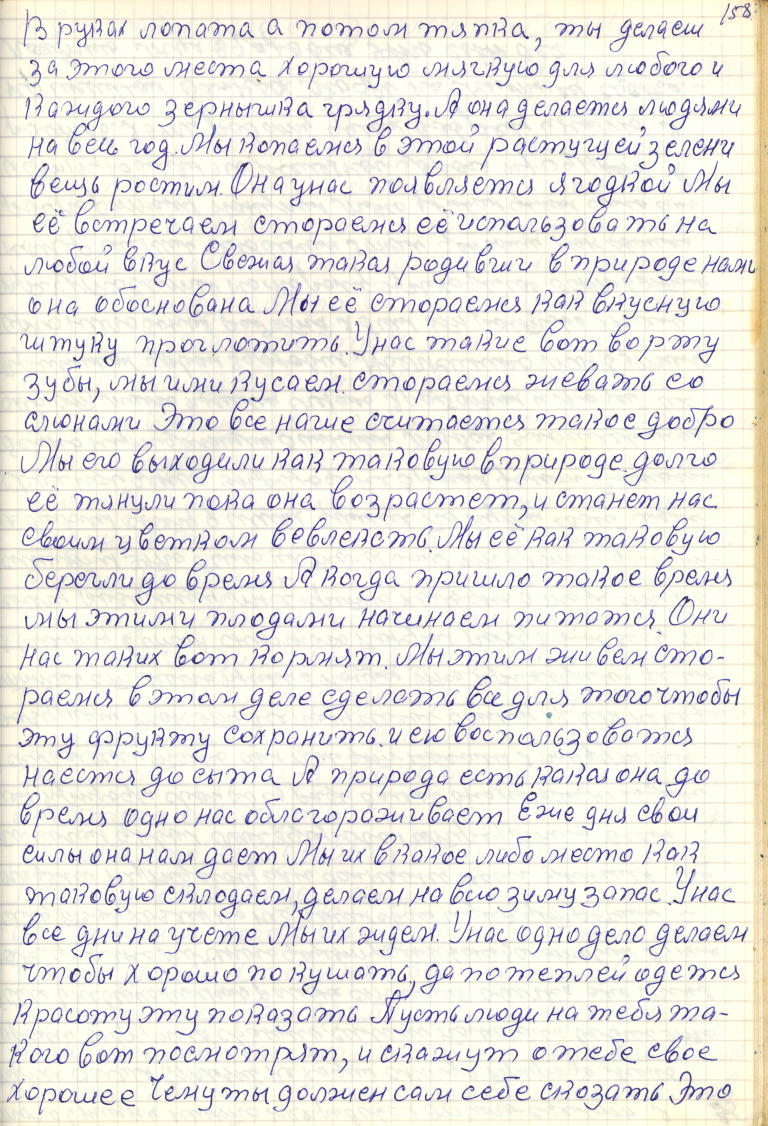 158.
В руках лопата а потом тяпка, ты делаеш
за этого места хорошую мягкую для любого и
каждого зернышка грядку. А она делается людями
на весь год. Мы копаемся в этой растущей зелени
вещь ростим. Она у нас появляется ягодкой Мы
её встречаем стораемся её использовать на
любой вкус Свежая такая родивши в природе нами
она обоснована Мы её стораемся как вкусную
штуку проглотить. У нас такие вот во рту
зубы, мы ими кусаем. стораемся жевать со
слюнами Это все наше считается такое добро
Мы его выходили как таковую в природе. долго
её тянули пока она возрастет, и станет нас
своим цветком вевлекать. Мы её как таковую
берегли до время А когда пришло такое время
мы этими плодами начинаем питатся. Они
нас таких вот кормят. Мы этим живем сто-
раемся в этом деле сделать все для того чтобы
эту фрукту сохранить. и ею воспользоватся
наестся до сыта А природа есть какая она до
время одно нас облагораживает Еже дня свои
силы она нам дает Мы их в какое либо место как
таковую склодаем, делаем на всю зиму запас. У нас
все дни на учете Мы их ждем. У нас одно дело делаем
чтобы хорошо покушать, да по теплей одется
красоту эту показать Пусть люди на тебя та-
кого вот посмотрят, и скажут о тебе свое
хорошее Чему ты должен сам себе сказать Это